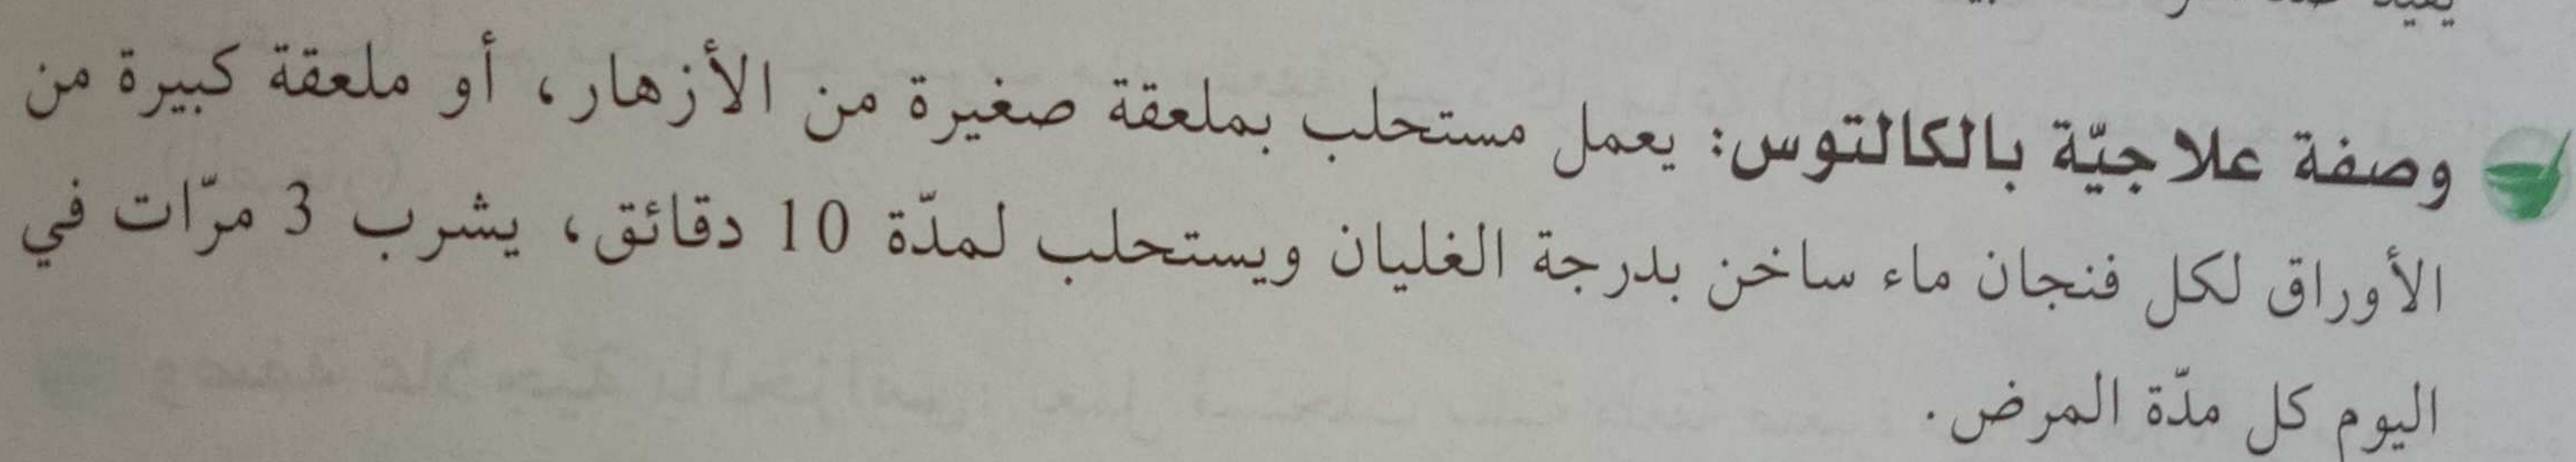 وصفة علاجيّة بالكالتوس: يعمل مستحلب بملعقة صغيرة من الأزهار، أو ملعقة كبيرة من
الأوراق لكل فنجان ماء ساخن بدرجة الغليان ويستحلب لمدّة 10 دقائق، يشرب 3 مرّات في
اليوم كل مدّة المرض.